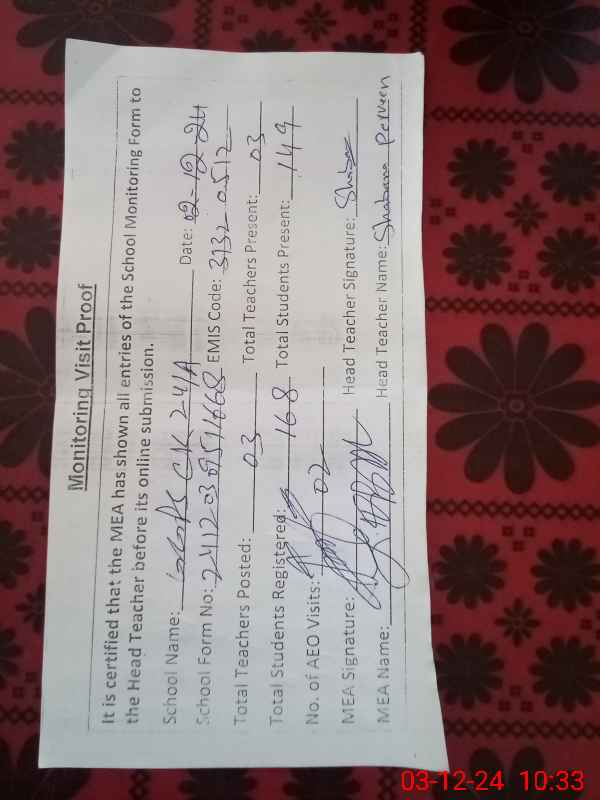 Monitoring Visit Proof
It is certified that the MEA has shown all entries of the School Monitoring Form to
the Head Teacher before its online submission.
School Name: GGPS CK 241A Date: 02-12-24
School Form No: EMIS Code: 3132 0512
Total Teachers Posted: 03 Total Teachers Present: 03
Total Students Registered: 168 Total Students Present: 149
No. of AEO Visits: 02
MEA Signature: Head Teacher Signature:
MEA Name: Head Teacher Name: Shabana Perveen
03-12-24 10:33